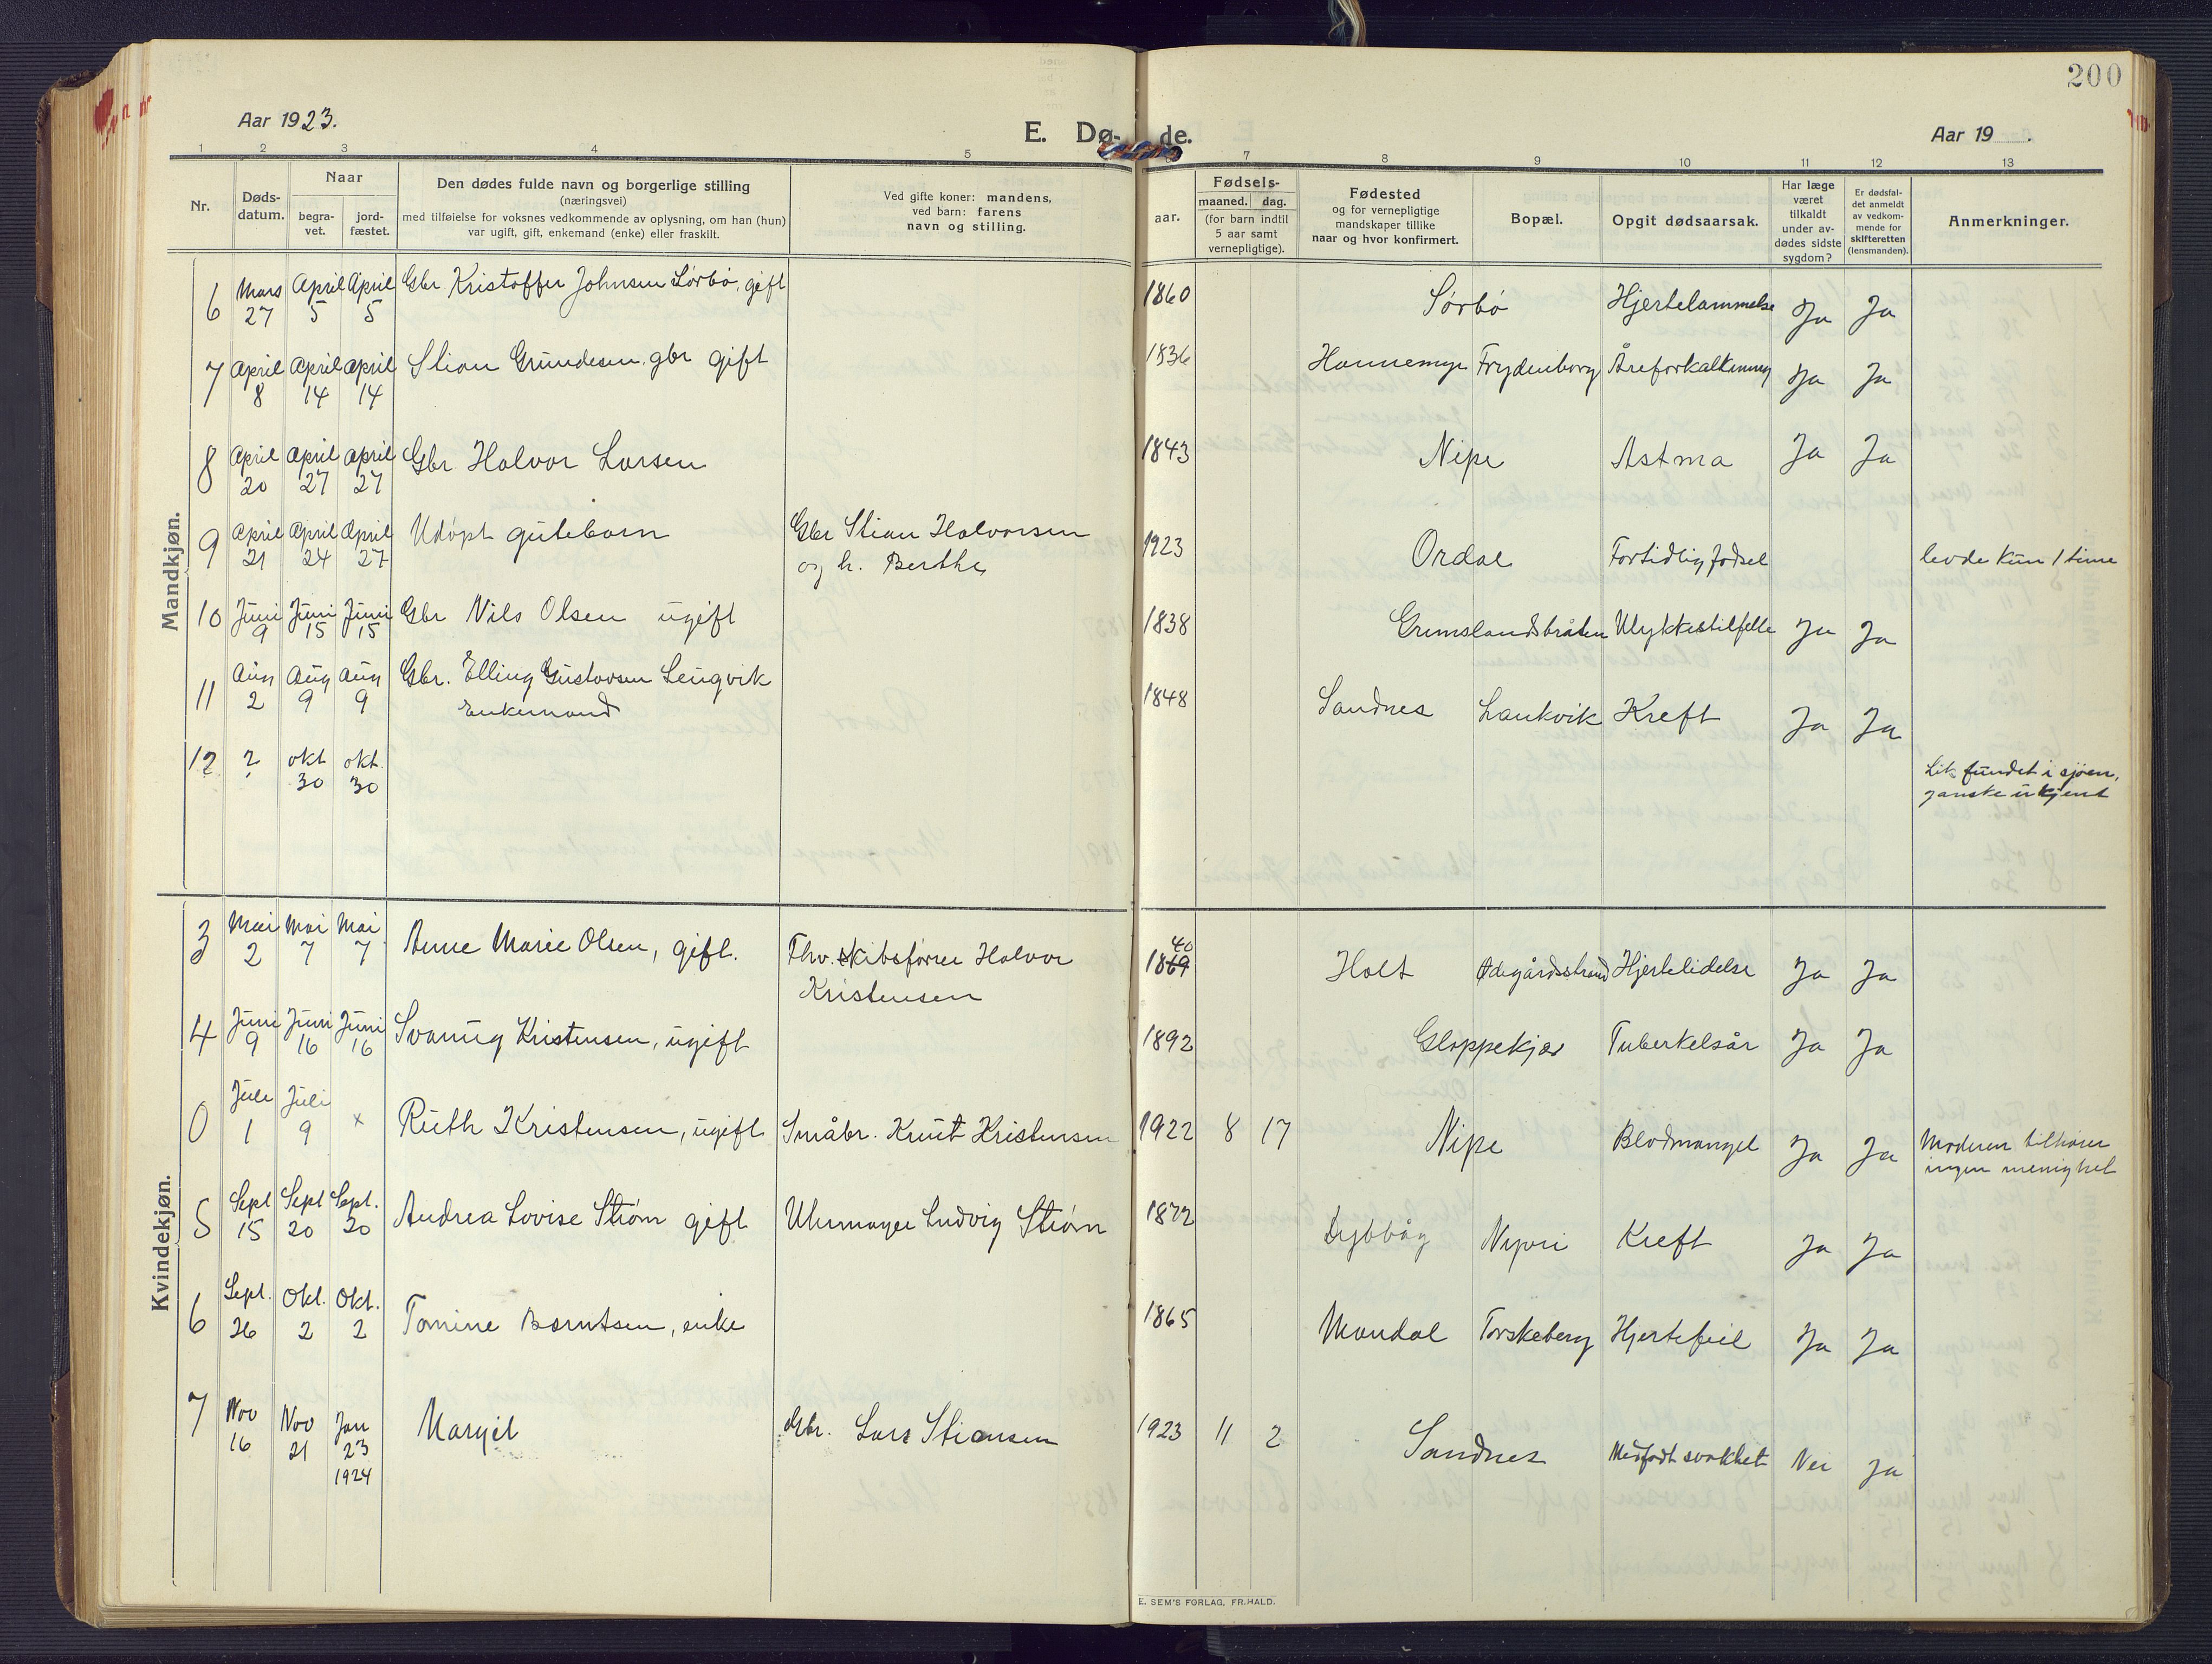 200
Aar 1923.
E. Dø- de.
Aar 19 .
1 2 3 4 5 7 8 9 10 11 12 13
Nr.
Døds-
datum.
Naar
begra-
vet.
jord-
fæstet.
Den dødes fulde navn og borgerlige stilling
(næringsvei)
med tilføielse for voksnes vedkommende av oplysning, om han (hun)
var ugift, gift, enkemand (enke) eller fraskilt.
Ved gifte koner: mandens,
ved barn: farens
navn og stilling.
aar.
Fødsels-
maaned. dag.
(for barn indtil
5 aar samt
vernepligtige).
Fødested
og for vernepligtige
mandskaper tillike
naar og hvor konfirmert.
Bopæl.
Opgit dødsaarsak.
Har læge
været
tilkaldt
under av-
dødes sidste
sygdom?
Er dødsfal-
det anmeldt
av vedkom-
mende for
skifteretten
(lensmanden).
Anmerkninger.
Mandkjøn.
6 Mars 27 April 5 April 5 Gbr. Kristoffer Johnsen Sørbø, gift 1860 Sørbø Hjertelammelse Ja Ja
7 April 8 April 14 April 14 Stian Grundesen. gbr gift 1836 Hannemyr Frydenborg Åreforkalkning Ja Ja
8 April 20 April 27 April 27 Gbr Halvor Larsen 1843 Nipe Astma Ja Ja
9 April 21 April 24 April 27 Udøpt gutebarn Gbr Stian Halvorsen
og h. Berthe 1923 Ordal Fortidlig fødsel levde kun 1 time
10 Juni 9 Juni 15 Juni 15 Gbr Nils Olsen ugift 1838 Grimslandsbråten Ulykkestilfelle Ja Ja
11 Aug 2 Aug 9 Aug 9 Gbr. Elling Gustavsen Lengvik
Enkemand 1848 Sandnes Lankvik Kreft Ja Ja
12 ? okt 30 okt. 30 Lik fundet i sjøen,
ganske ukjent
Kvindekjøn.
3 Mai 2 Mai 7 Mai 7 Anne Marie Olsen, gift. Fhv. skibsfører Halvor
Kristensen 1869 40 Holt Ødegårdsstrand Hjertelidelse Ja Ja
4 Juni 9 Juni 16 Juni 16 Svanug Kristensen, ugift 1892 Gloppekjær Tuberkelsår Ja Ja
0 Juli 1 Juli 9 x Ruth Kristensen, ugift Småbr. Knut Kristensen 1922 8 17 Nipe Blodmangel Ja Ja Moderen tilhører
ingen menighet
5 Sept 15 Sept 20 Sept. 20 Andrea Lovise Strøm gift Uhrmager Ludvig Strøm 1872 Dybvåg Kreft Ja Ja
6 Sept. 26 Okt. 2 Okt. 2 Tomine Berntsen, enke 1865 Mandal Torskeberg Hjertefeil Ja Ja
7 Nov 16 Nov 21 Jan 23 1924 Margit Gbr. Lars Stiansen 1923 11 2 Sandnes Medfødt svakhet Nei Ja
E. SEM'S FORLAG, FR.HALD.